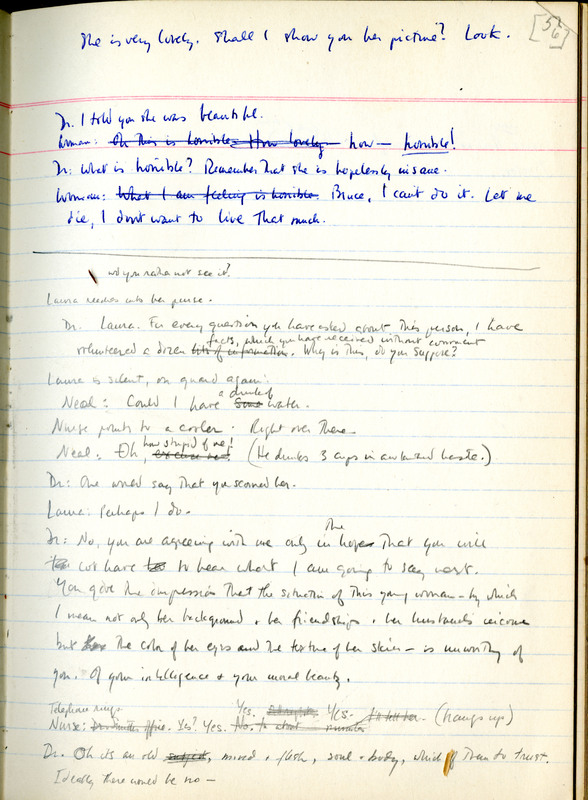 [56]
She is very lovely. Shall I show you her picture? Look.
Dr. I told you she was beautiful.
Woman: Oh this is horrible. How lovely how — horrible!
Dr: What is horrible? Remember that she is hopelessly insane.
Woman: What I am feeling is horrible. Bruce, I can't do it. Let me
die, I don't want to live that much.
wd you rather not see it?
Laura reaches into her purse.
Dr. Laura. For every question you have asked about this person, I have
facts, which you have received without comment
volunteered a dozen bits of information. Why is this, do you suppose?
Laura is silent, on guard again.
a drink of
Neal: Could I have some water.
Nurse points to a cooler. Right over there
how stupid of me!
Neal: Oh, excuse me! (He drinks 3 cups in awkward haste.)
Dr: One would say that you scorned her.
Laura: Perhaps I do.
the
Dr: No, you are agreeing with me only in hope that you will
not have to hear what I am going to say next.
You give the impression that the situation of this young woman — by which
I mean not only her background, her friendships, her husband's income
but the color of her eyes and the texture of her skin — is unworthy of
you. Of your intelligence & your moral beauty.
Telephone rings
Yes. Yes.
Nurse: Dr. office. Yes? Yes. No. to about (hangs up)
Dr. Oh it's an old subject, mind & flesh, soul & body, which of them to trust.
Ideally there would be no —